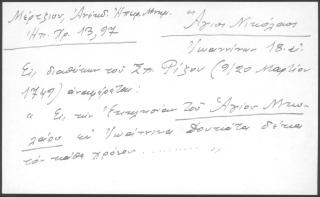 Μέρτζιου, Ἀνέκδ. Ἠπειρ. Μνημ.
Ἠπ. Χρ. 13, 97
Ἅγιος Νικόλαος
Ἰωαννίνων 18. αἰ.
Εἰς διαθήκην τοῦ Σπ. Ρίζου (9/20 Μαρτίου
1749) ἀναφέρεται:
" Εἰς τὴν Ἐκκλησίαν τοῦ Ἁγίου Νικο-
λάου εἰς Ἰωάννινα δουκάτα δέκα
τὸν κάθε χρόνον .......... "